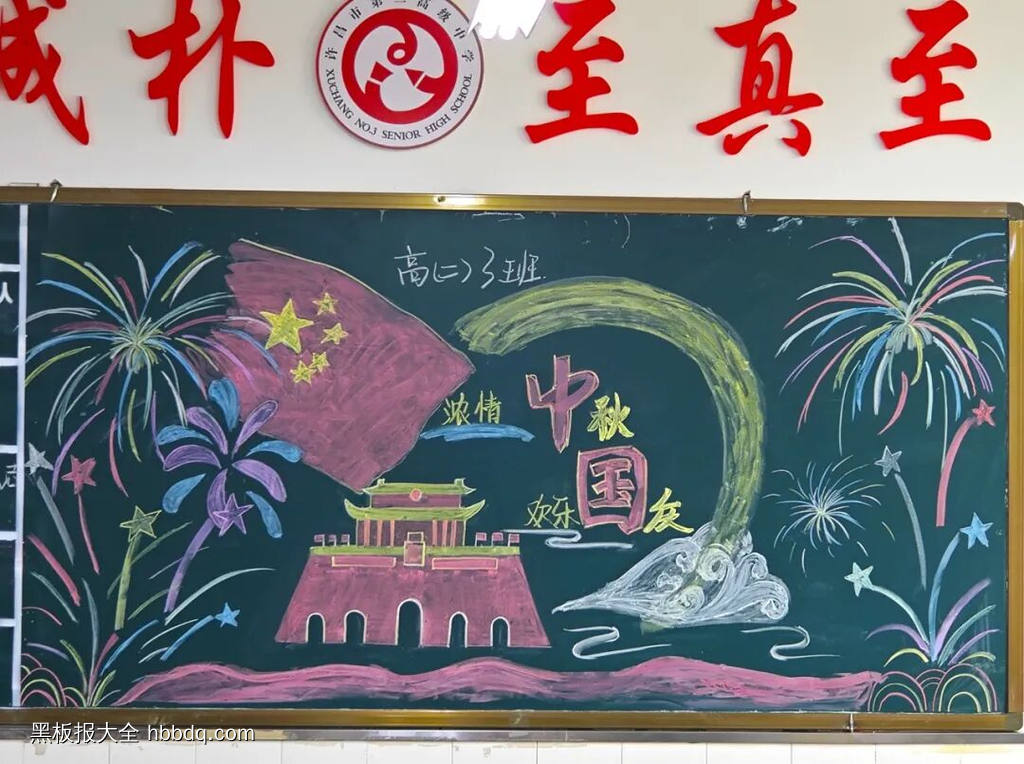 诚朴 至真至
许昌市第三高级中学
XUCHANG NO.3 SENIOR HIGH SCHOOL
高(二)3班
浓情中秋
欢乐国庆
黑板报大全 hbbdq.com